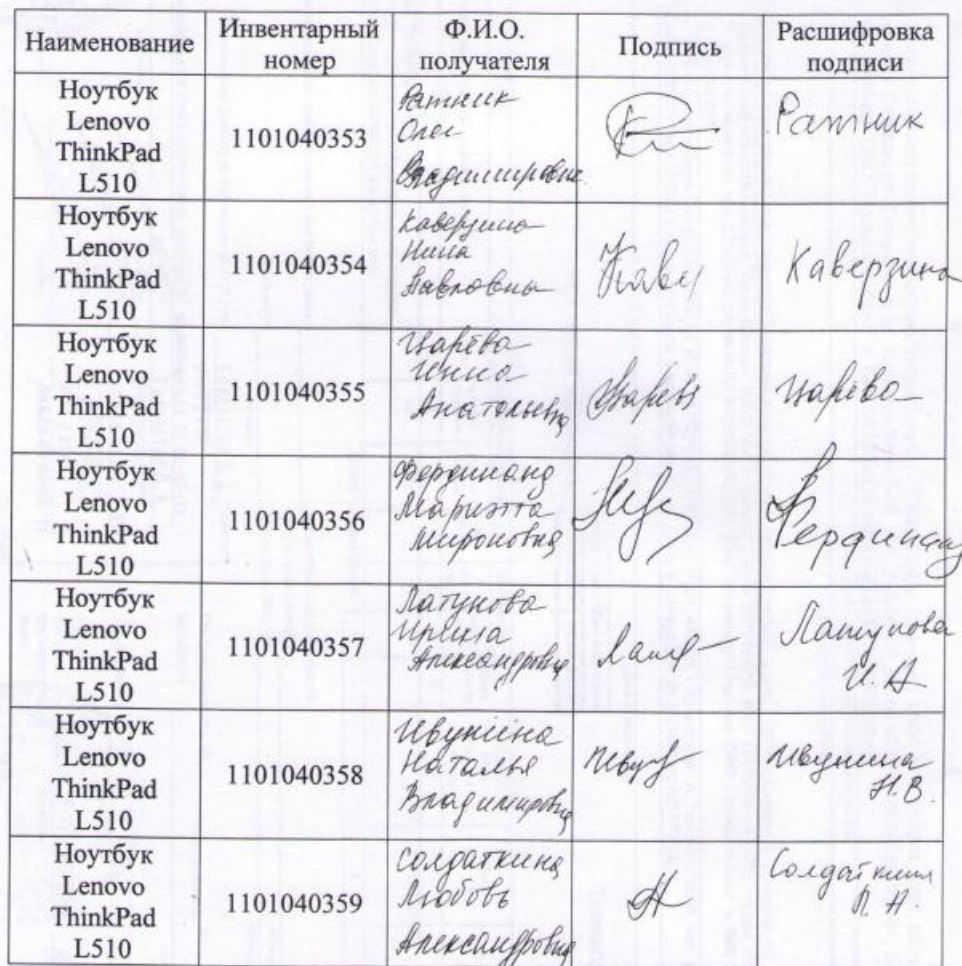 Наименование
Инвентарный
номер
Ф.И.О.
получателя
Подпись
Расшифровка
подписи
Ноутбук
Lenovo
ThinkPad
L510
1101040353
Ратник
Олег
Владимирович
Ратник
Ноутбук
Lenovo
ThinkPad
L510
1101040354
Каверзина
Нина
Павловна
Каверзина
Ноутбук
Lenovo
ThinkPad
L510
1101040355
Царёва
Анатольевна
Царёва
Царёва
Ноутбук
Lenovo
ThinkPad
L510
1101040356
Фердинанд
Мариэтта
Мироновна
Фердинанд
Ноутбук
Lenovo
ThinkPad
L510
1101040357
Латунова
Ирина
Александровна
Латунова
И.А
Ноутбук
Lenovo
ThinkPad
L510
1101040358
Ивунина
Наталья
Владимировна
Ивунина
Н.В.
Ноутбук
Lenovo
ThinkPad
L510
1101040359
Солдаткина
Любовь
Александровна
Солдаткина
Л.А.